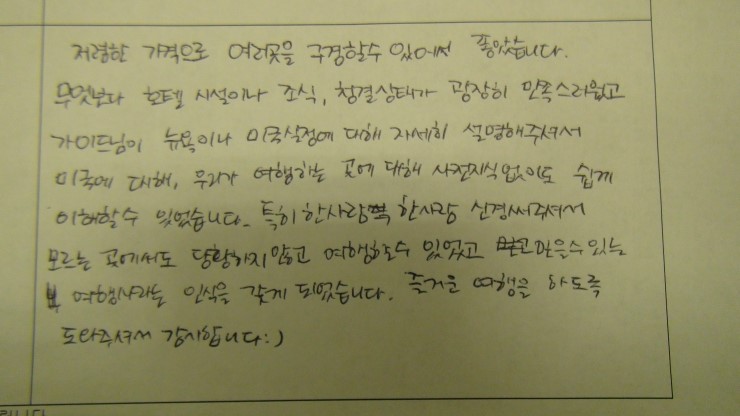 저렴한 가격으로 여러곳을 구경할수 있어서 좋았습니다.
무엇보다 호텔 시설이나 조식, 청결상태가 굉장히 만족스러웠고
가이드님이 뉴욕이나 미국실정에 대해 자세히 설명해주셔서
미국에 대해, 우리가 여행하는 곳에 대해 사전지식없이도 쉽게
이해할수 있었습니다. 특히 한사람 한사람 신경써주셔서
모르는 곳에서도 당황하지 않고 여행할수 있었고 믿을수 있는
여행사라는 인식을 갖게 되었습니다. 즐거운 여행을 하도록
도와주셔서 감사합니다:)
립니다